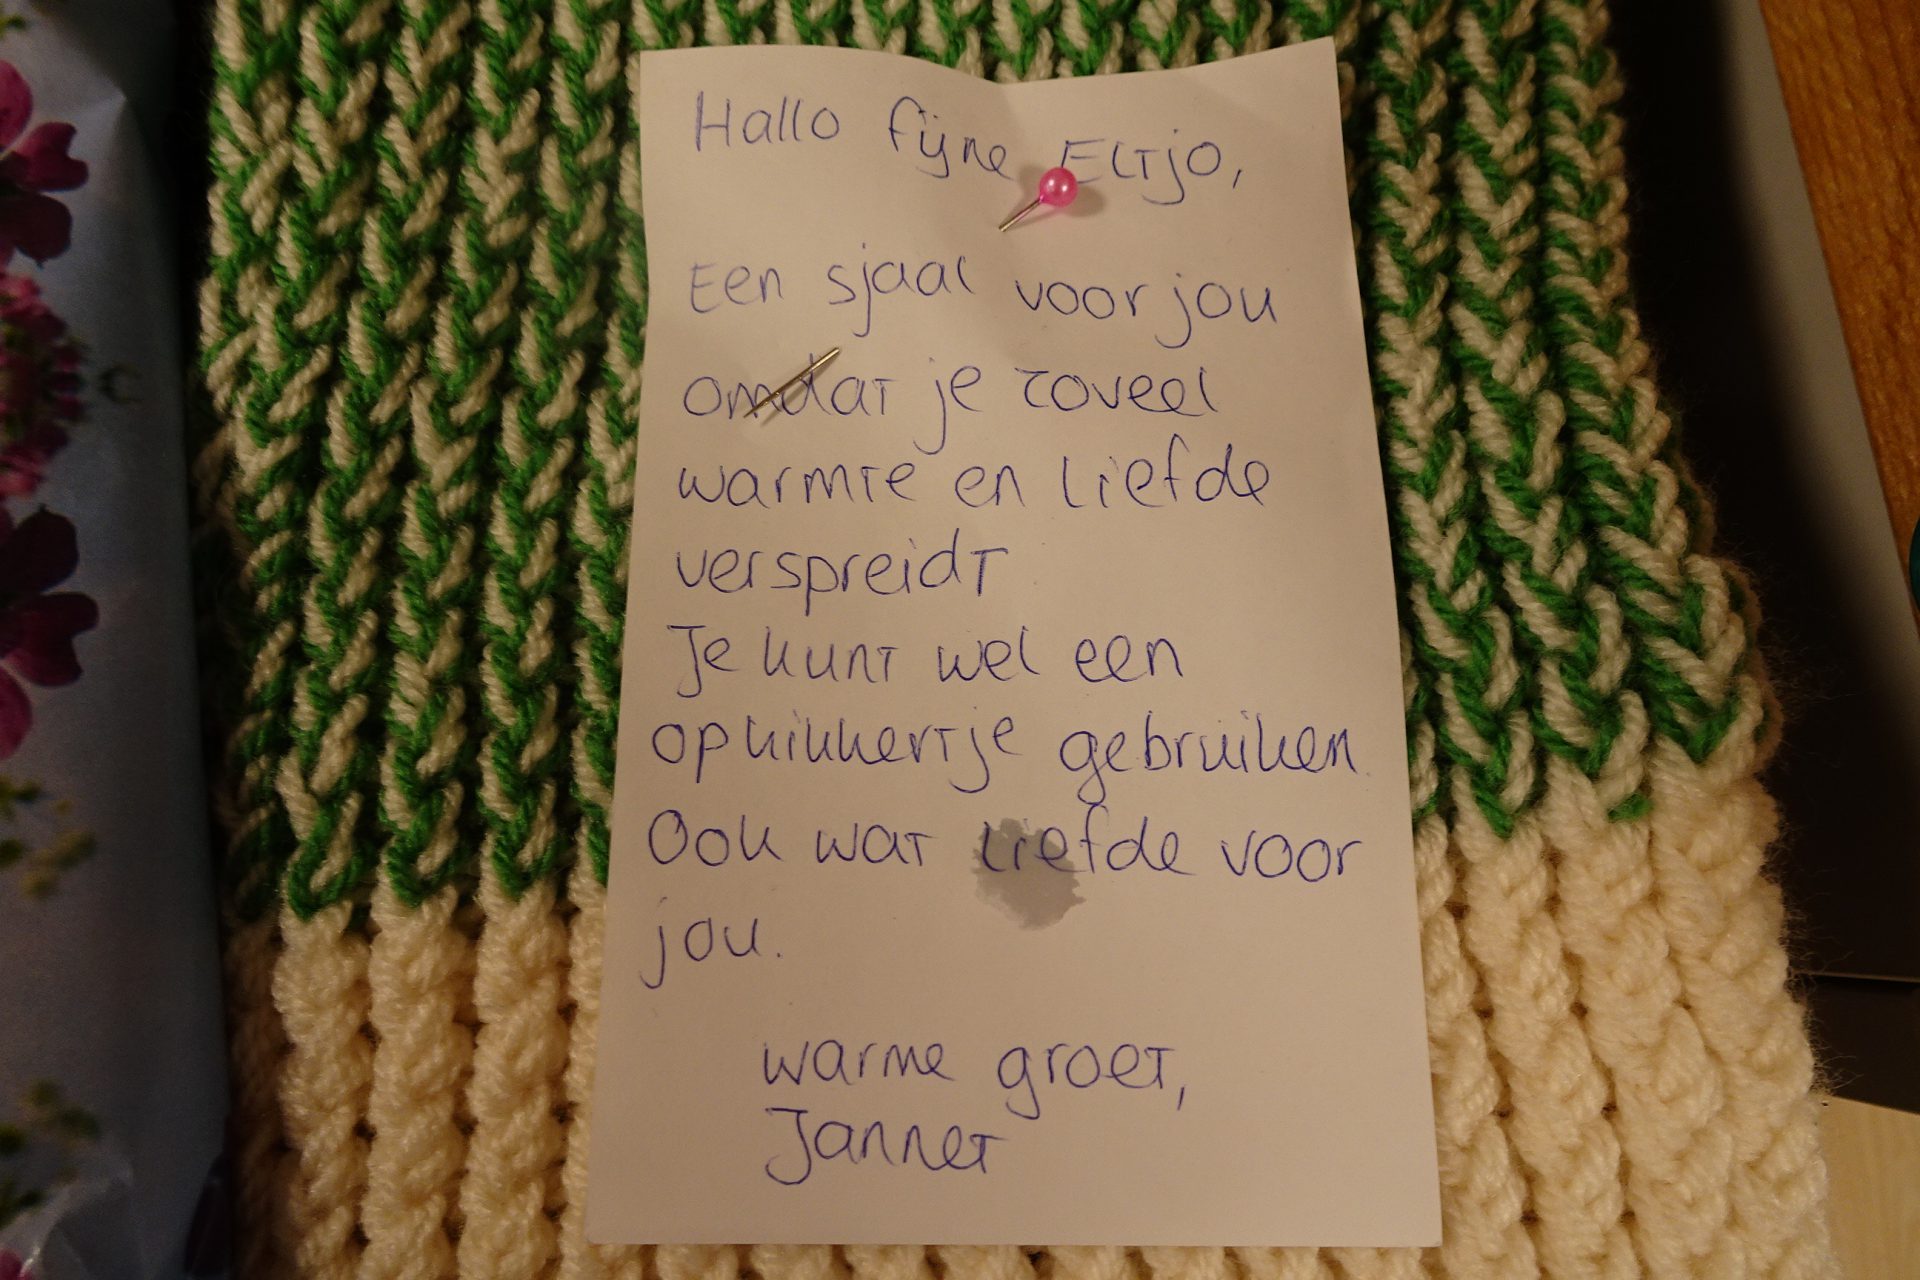 Hallo fijne Eltjo,
Een sjaal voor jou
omdat je zoveel
warmte en liefde
verspreidt
Je kunt wel een
opkikkertje gebruiken.
Ook wat liefde voor
jou.
warme groet,
Jannet